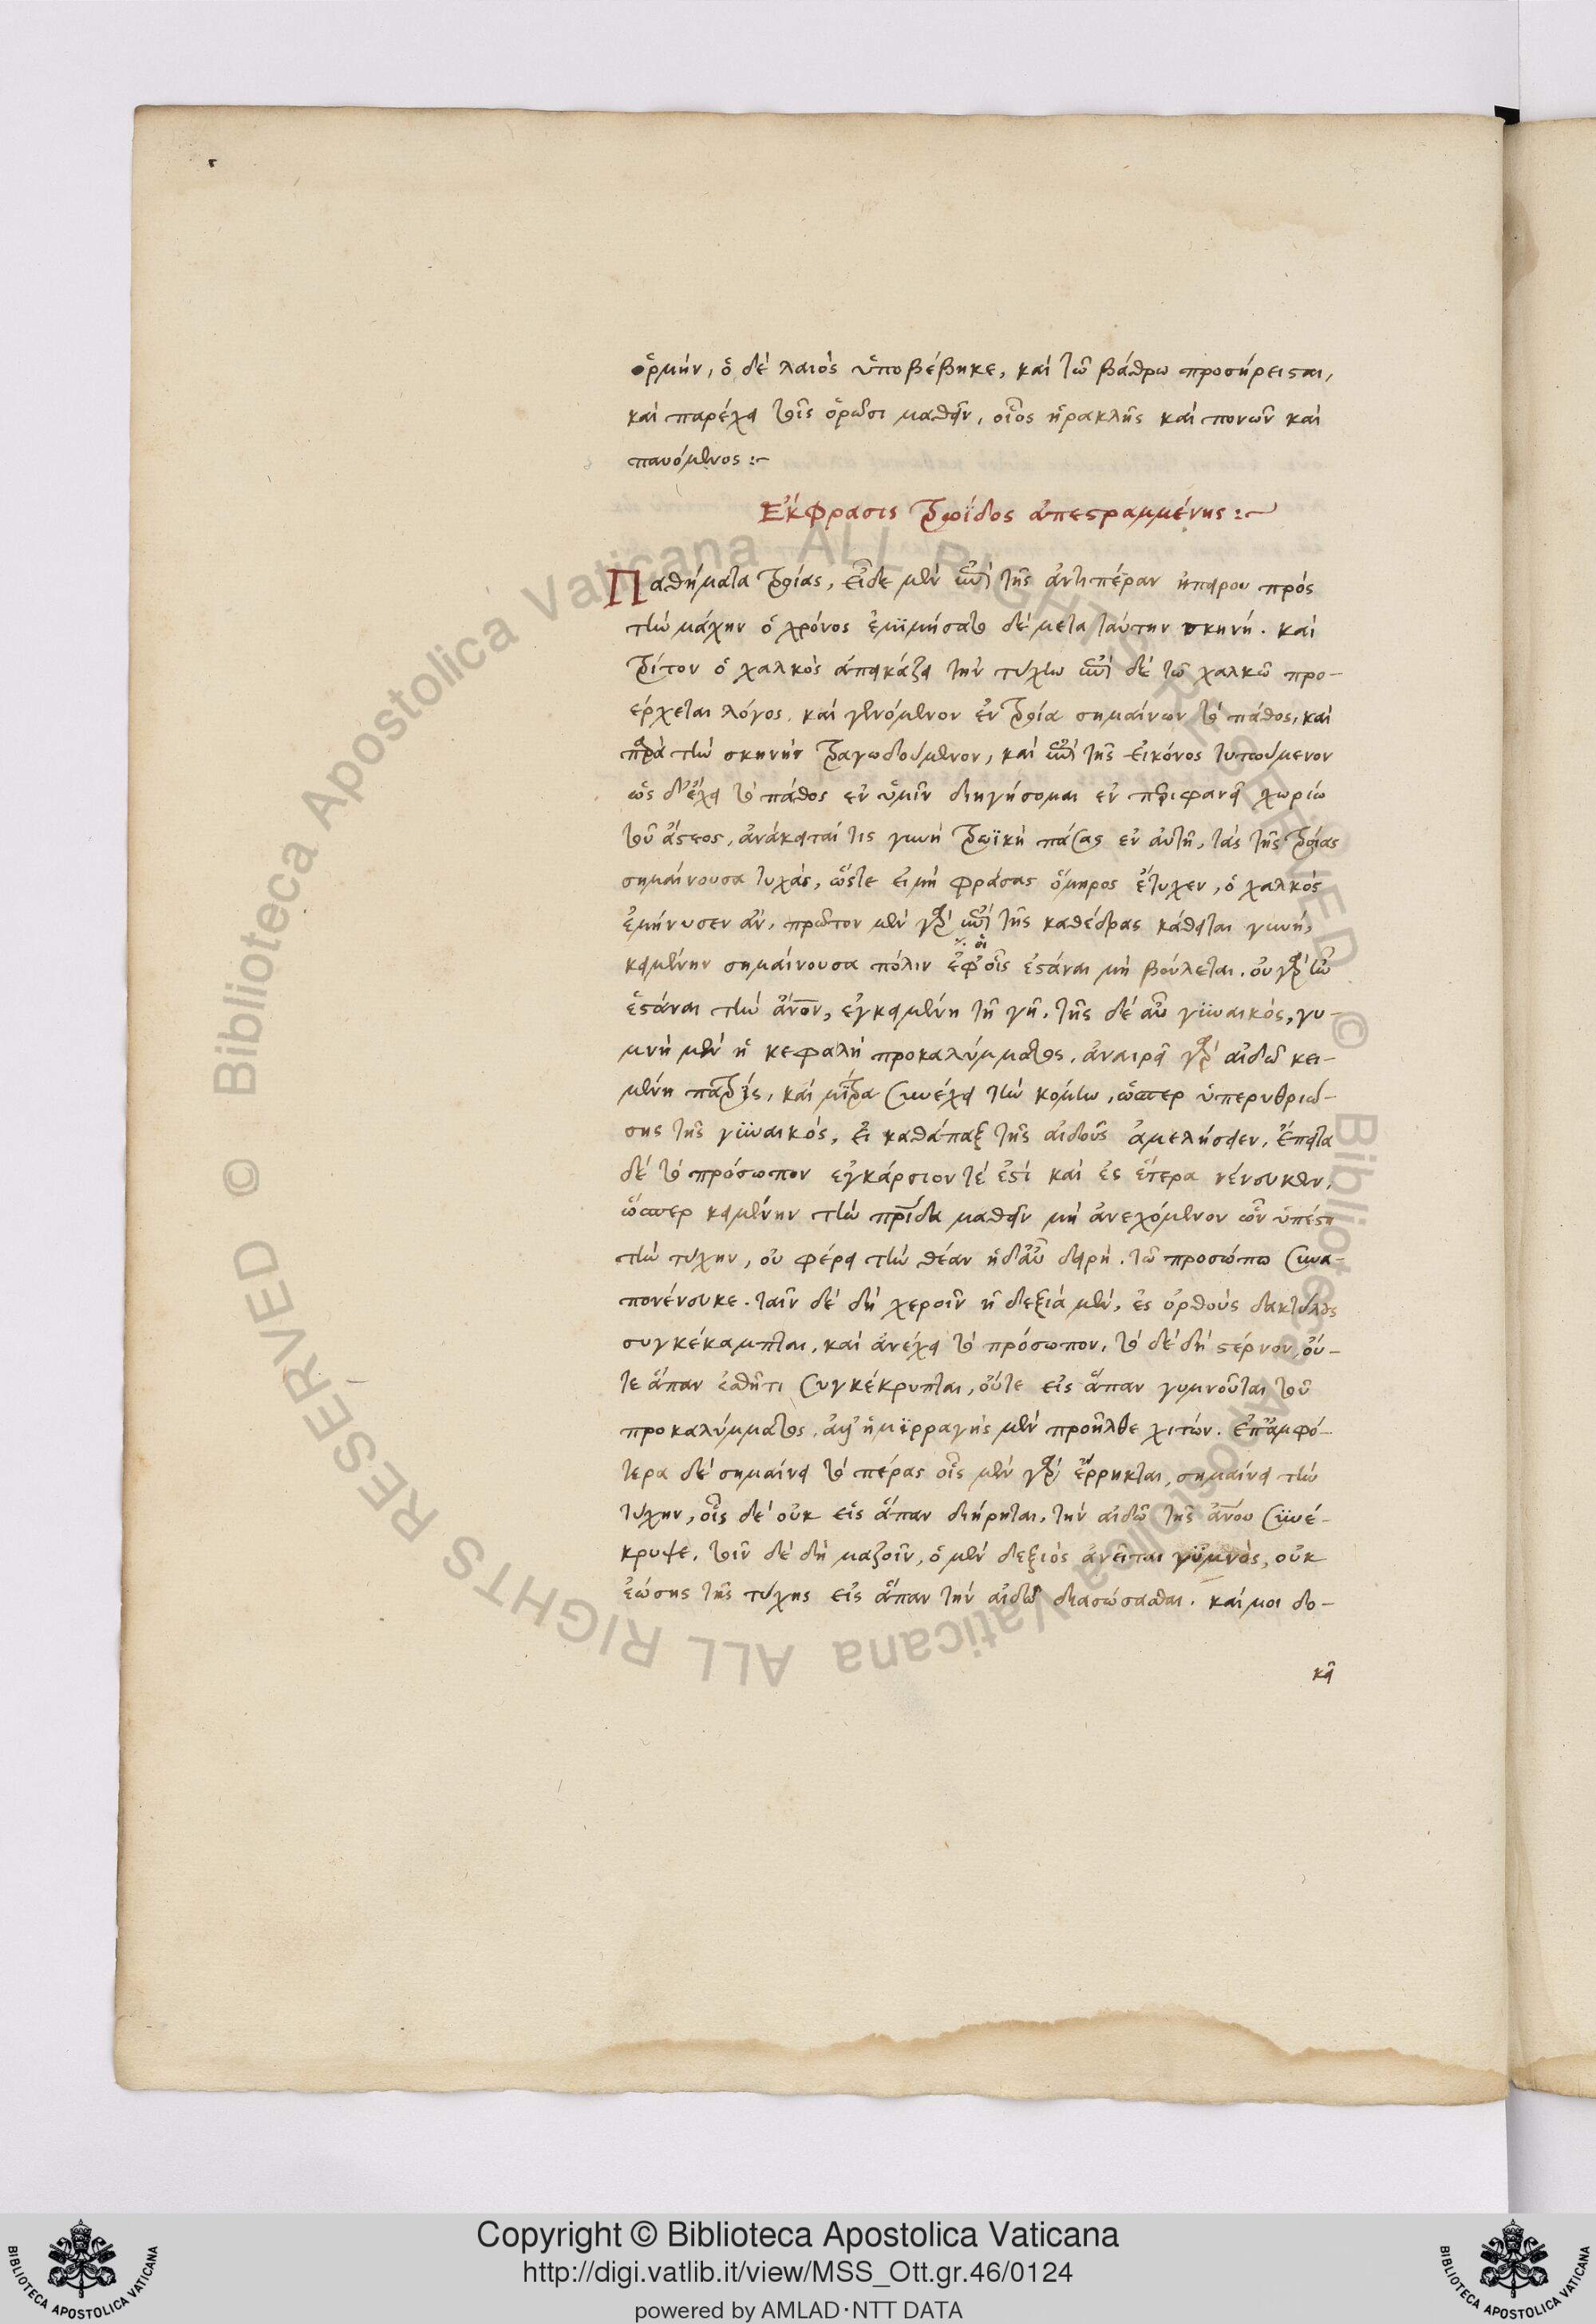 ὁρμήν, ὁ δὲ λαιὸς ὑποβέβηκε, καὶ τῶ βάθρω προσήρεισται,
καὶ παρέχει τοῖς ὁρῶσι μαθεῖν, οἷος ἡρακλῆς καὶ πονῶν καὶ
παυόμενος :~
Ἔκφρασις τρωΐδος ἀπεστραμμένης :~
Παθήματα τροίας, εἶδε μὲν ἐπὶ τῆς ἀντιπέραν ἠπείρου πρὸς
τὴν μάχην ὁ χρόνος ἐμιμήσατο δὲ μετὰ ταύτην σκηνή. καὶ
τρίτον ὁ χαλκὸς ἀπεικάζει τὴν τύχην ἐπὶ δὲ τῶ χαλκῶ προ-
έρχεται λόγος, καὶ γενόμενον ἐν τροία σημαίνων τὸ πάθος, καὶ
παρὰ τὴν σκηνὴν τραγωδούμενον, καὶ ἐπὶ τῆς εἰκόνος τυπούμενον
ὡς δ' ἔχει τὸ πάθος ἐν ὑμῖν διηγήσομαι ἐν περιφανεῖ χωρίω
τοῦ ἄστεος, ἀνάκειταί τις γυνὴ τρωϊκὴ πάσας ἐν αὐτῆ, τὰς τῆς τροίας
σημαίνουσα τυχὰς, ὥστε εἰ μὴ φράσας ὅμηρος ἔτυχεν, ὁ χαλκὸς
ἐμήνυσεν ἂν, πρῶτον μὲν γὰρ ἐπὶ τῆς καθέδρας κάθηται γυνή,
οἱ
κειμένην σημαίνουσα πόλιν ἐφ' οἷς ἑστάναι μὴ βούλεται. οὐ γὰρ τῶ
ἑστάναι τὴν ἄνον, ἐγκειμένη τῆ γῆ. τῆς δὲ αὖ γυναικὸς, γυ-
μνὴ μὲν ἡ κεφαλὴ προκαλύμματος. ἀναιρεῖ γὰρ αἰδῶ κει-
μένη πατρὶς, καὶ μίτρα συνέχει τὴν κόμην, ὥσπερ ὑπερυθριώ-
σης τῆς γυναικὸς, εἰ καθάπαξ τῆς αἰδοῦς ἀμελήσειεν. ἔπειτα
δὲ τὸ πρόσωπον ἐγκάρσιον τέ ἐστι καὶ ἐς ἕτερα νένευκεν,
ὥσπερ κειμένην τὴν πρίδα μαθεῖν μὴ ἀνεχόμενον ὧν ὑπέστη
τὴν τύχην, οὐ φέρει τὴν θέαν ἡ δ' αὖ δειρὴ. τῶ προσώπω συνα-
πονένευκε. ταῖν δὲ δὴ χεροῖν ἡ δεξιὰ μὲν, ἐς ὀρθοὺς δακτύλους
συγκέκαμπται, καὶ ἀνέχει τὸ πρόσωπον, τὸ δὲ δὴ στέρνον, οὔ-
τε ἅπαν ἐσθῆτι συγκέκρυπται, οὔτε εἰς ἅπαν γυμνοῦται τοῦ
προκαλύμματος, ἀλλ' ἡμιρραγὴς μὲν προῆλθε χιτών. ἐπ' ἀμφό-
τερα δὲ σημαίνει τὸ πέρας οἷς μὲν γὰρ ἔρρηκται, σημαίνει τὴν
τύχην, οἷς δὲ οὐκ εἰς ἅπαν διήρηται, τὴν αἰδῶ τῆς ἄνου συνέ-
κρυψε. τοῖν δὲ δὴ μαζοῖν, ὁ μὲν δεξιὸς ἀνεῖται γυμνὸς, οὐκ
ἐώσης τῆς τύχης εἰς ἅπαν τὴν αἰδῶ διασώσασθαι. καί μοι δο-
κεῖ
Copyright © Biblioteca Apostolica Vaticana
http://digi.vatlib.it/view/MSS_Ott.gr.46/0124
powered by AMLAD·NTT DATA
BIBLIOTECA APOSTOLICA VATICANA
BIBLIOTECA APOSTOLICA VATICANA
© Biblioteca Apostolica Vaticana ALL RIGHTS RESERVED
© Biblioteca Apostolica Vaticana ALL RIGHTS RESERVED